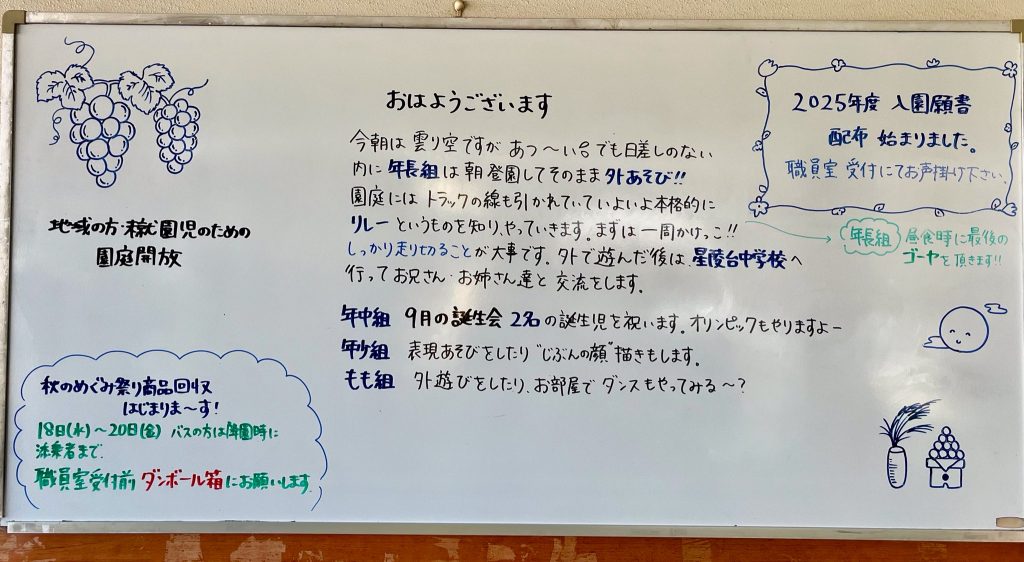 おはようございます
今朝は 曇り空ですが あつ〜い。でも日差しのない
内に 年長組は 朝 登園してそのまま 外あそび!!
園庭には トラックの線も引かれていていよいよ本格的に
リレーというものを知り、やっていきます。まずは一周かけっこ!!
しっかり走り切ることが大事です。外で遊んだ後は、星陵台中学校へ
行ってお兄さん・お姉さん達と 交流をします。
年中組 9月の誕生会 2名の誕生児を祝います。オリンピックもやりますよー
年少組 表現あそびをしたり"じぶんの顔"描きもします。
もも組 外遊びをしたり、お部屋で ダンスもやってみる〜?
地域の方・未就園児のための
園庭開放
秋のめぐみ祭り商品回収
はじまりま〜す!
18日(水)〜20日(金) バスの方は降園時に
添乗者まで
職員室受付前 ダンボール箱にお願いします
2025年度 入園願書
配布 始まりました。
職員室 受付にてお声掛け下さい。
年長組 昼食時に最後の
ゴーヤを頂きます!!